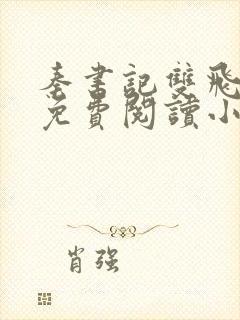 秦書記雙飛
免費閱讀小
肖强